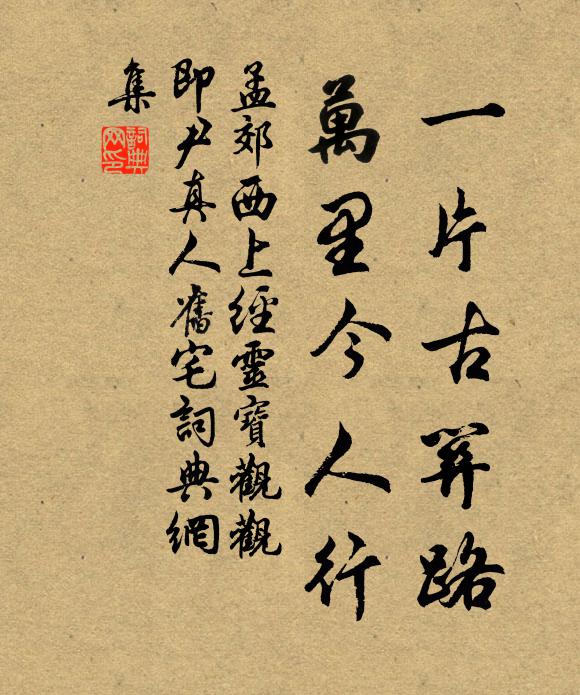 一片古關路
萬里今人行
孟郊西上經靈寶觀觀
即尹真人舊宅詞典網
集
詞典
网印